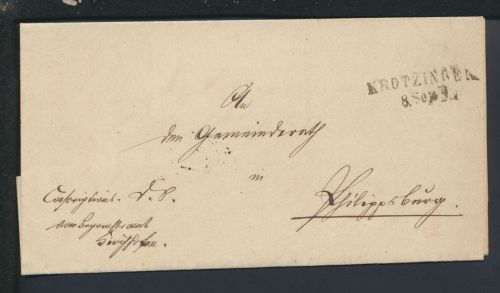 KROTZINGEN
8. Sep
An
den Gemeinderath
in
Philippsburg.
Conscriptions. D. S.